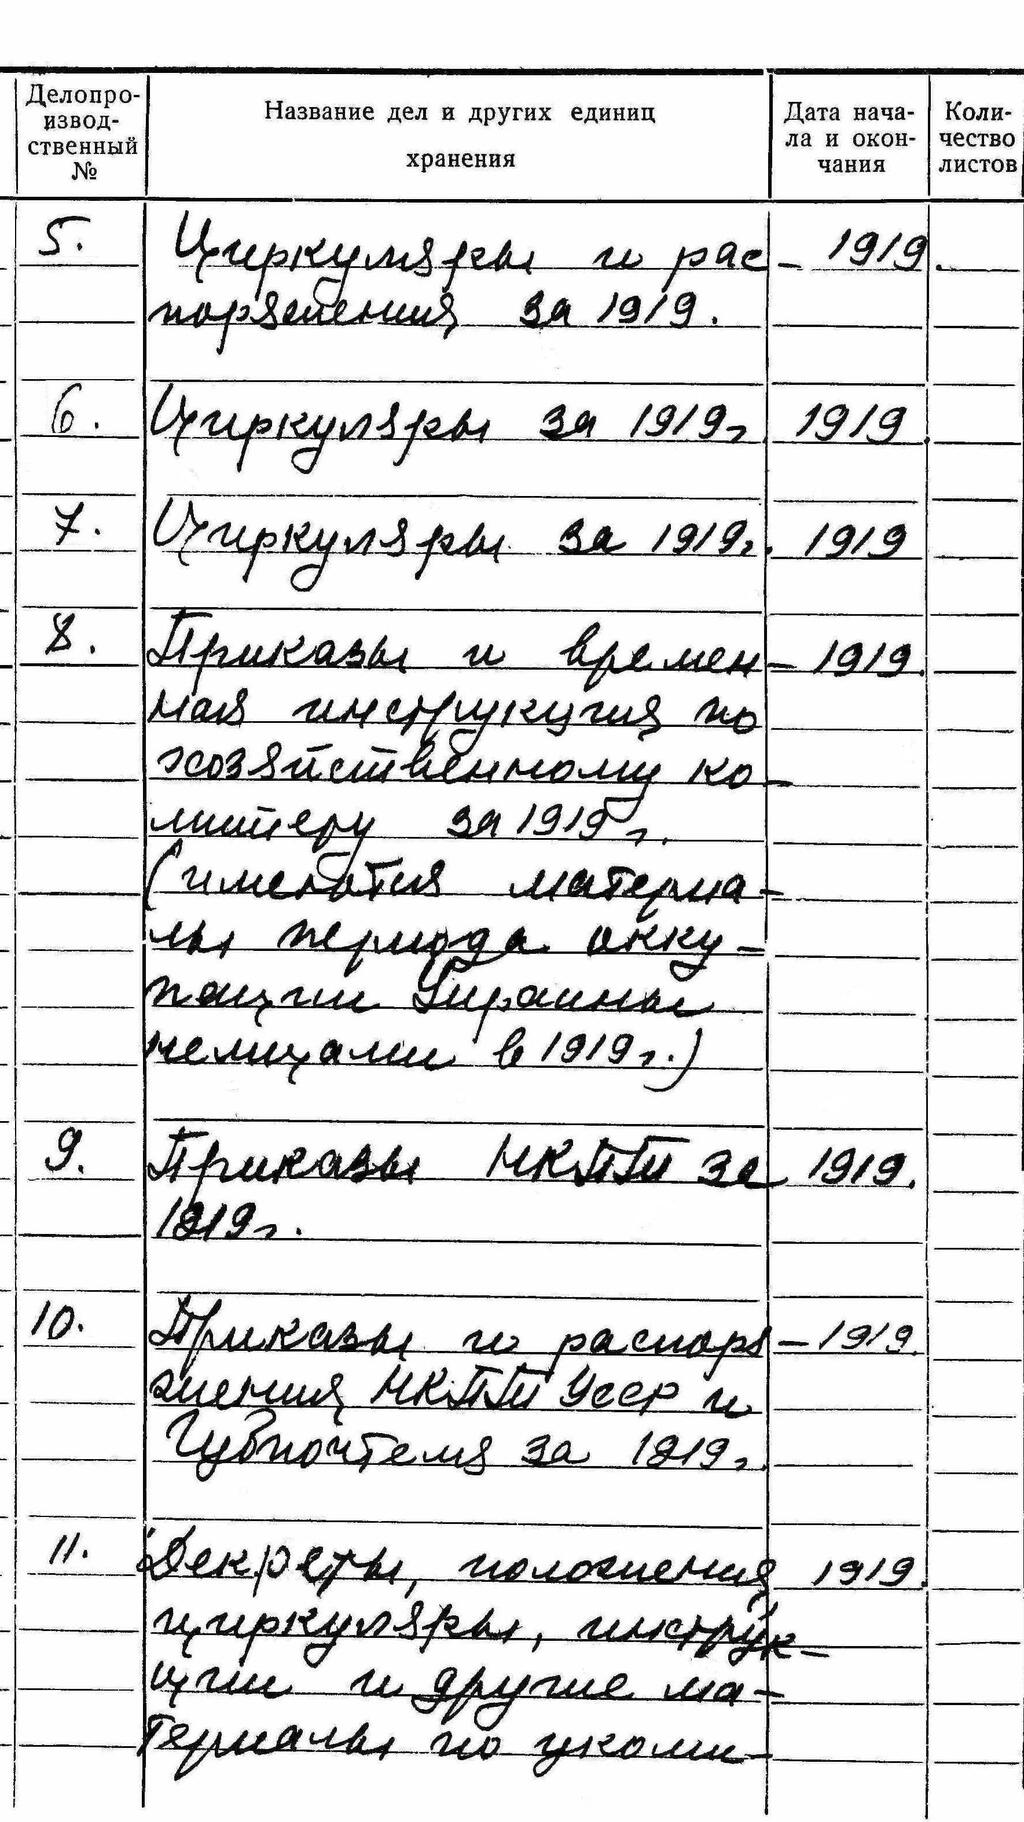 Делопро-
извод-
ственный
№
Название дел и других единиц
хранения
Дата нача-
ла и окон-
чания
Коли-
чество
листов
5. Циркуляры и рас- 1919.
поряжения за 1919.
6. Циркуляры за 1919г. 1919.
7. Циркуляры за 1919г. 1919
8. Приказы и времен- 1919.
ная инструкция по
хозяйственному ко-
митету за 1919 г.
(имеются материа-
лы периода окку-
пации Украины
немцами в 1919г.)
9. Приказы НКПТ за 1919.
1919г.
10. Приказы и распоря- 1919.
жения НКПТ УССР и
Губпочтеля за 1919г.
11. Декреты, положения 1919.
циркуляры, инструк-
ции и другие ма-
териалы по укоми-